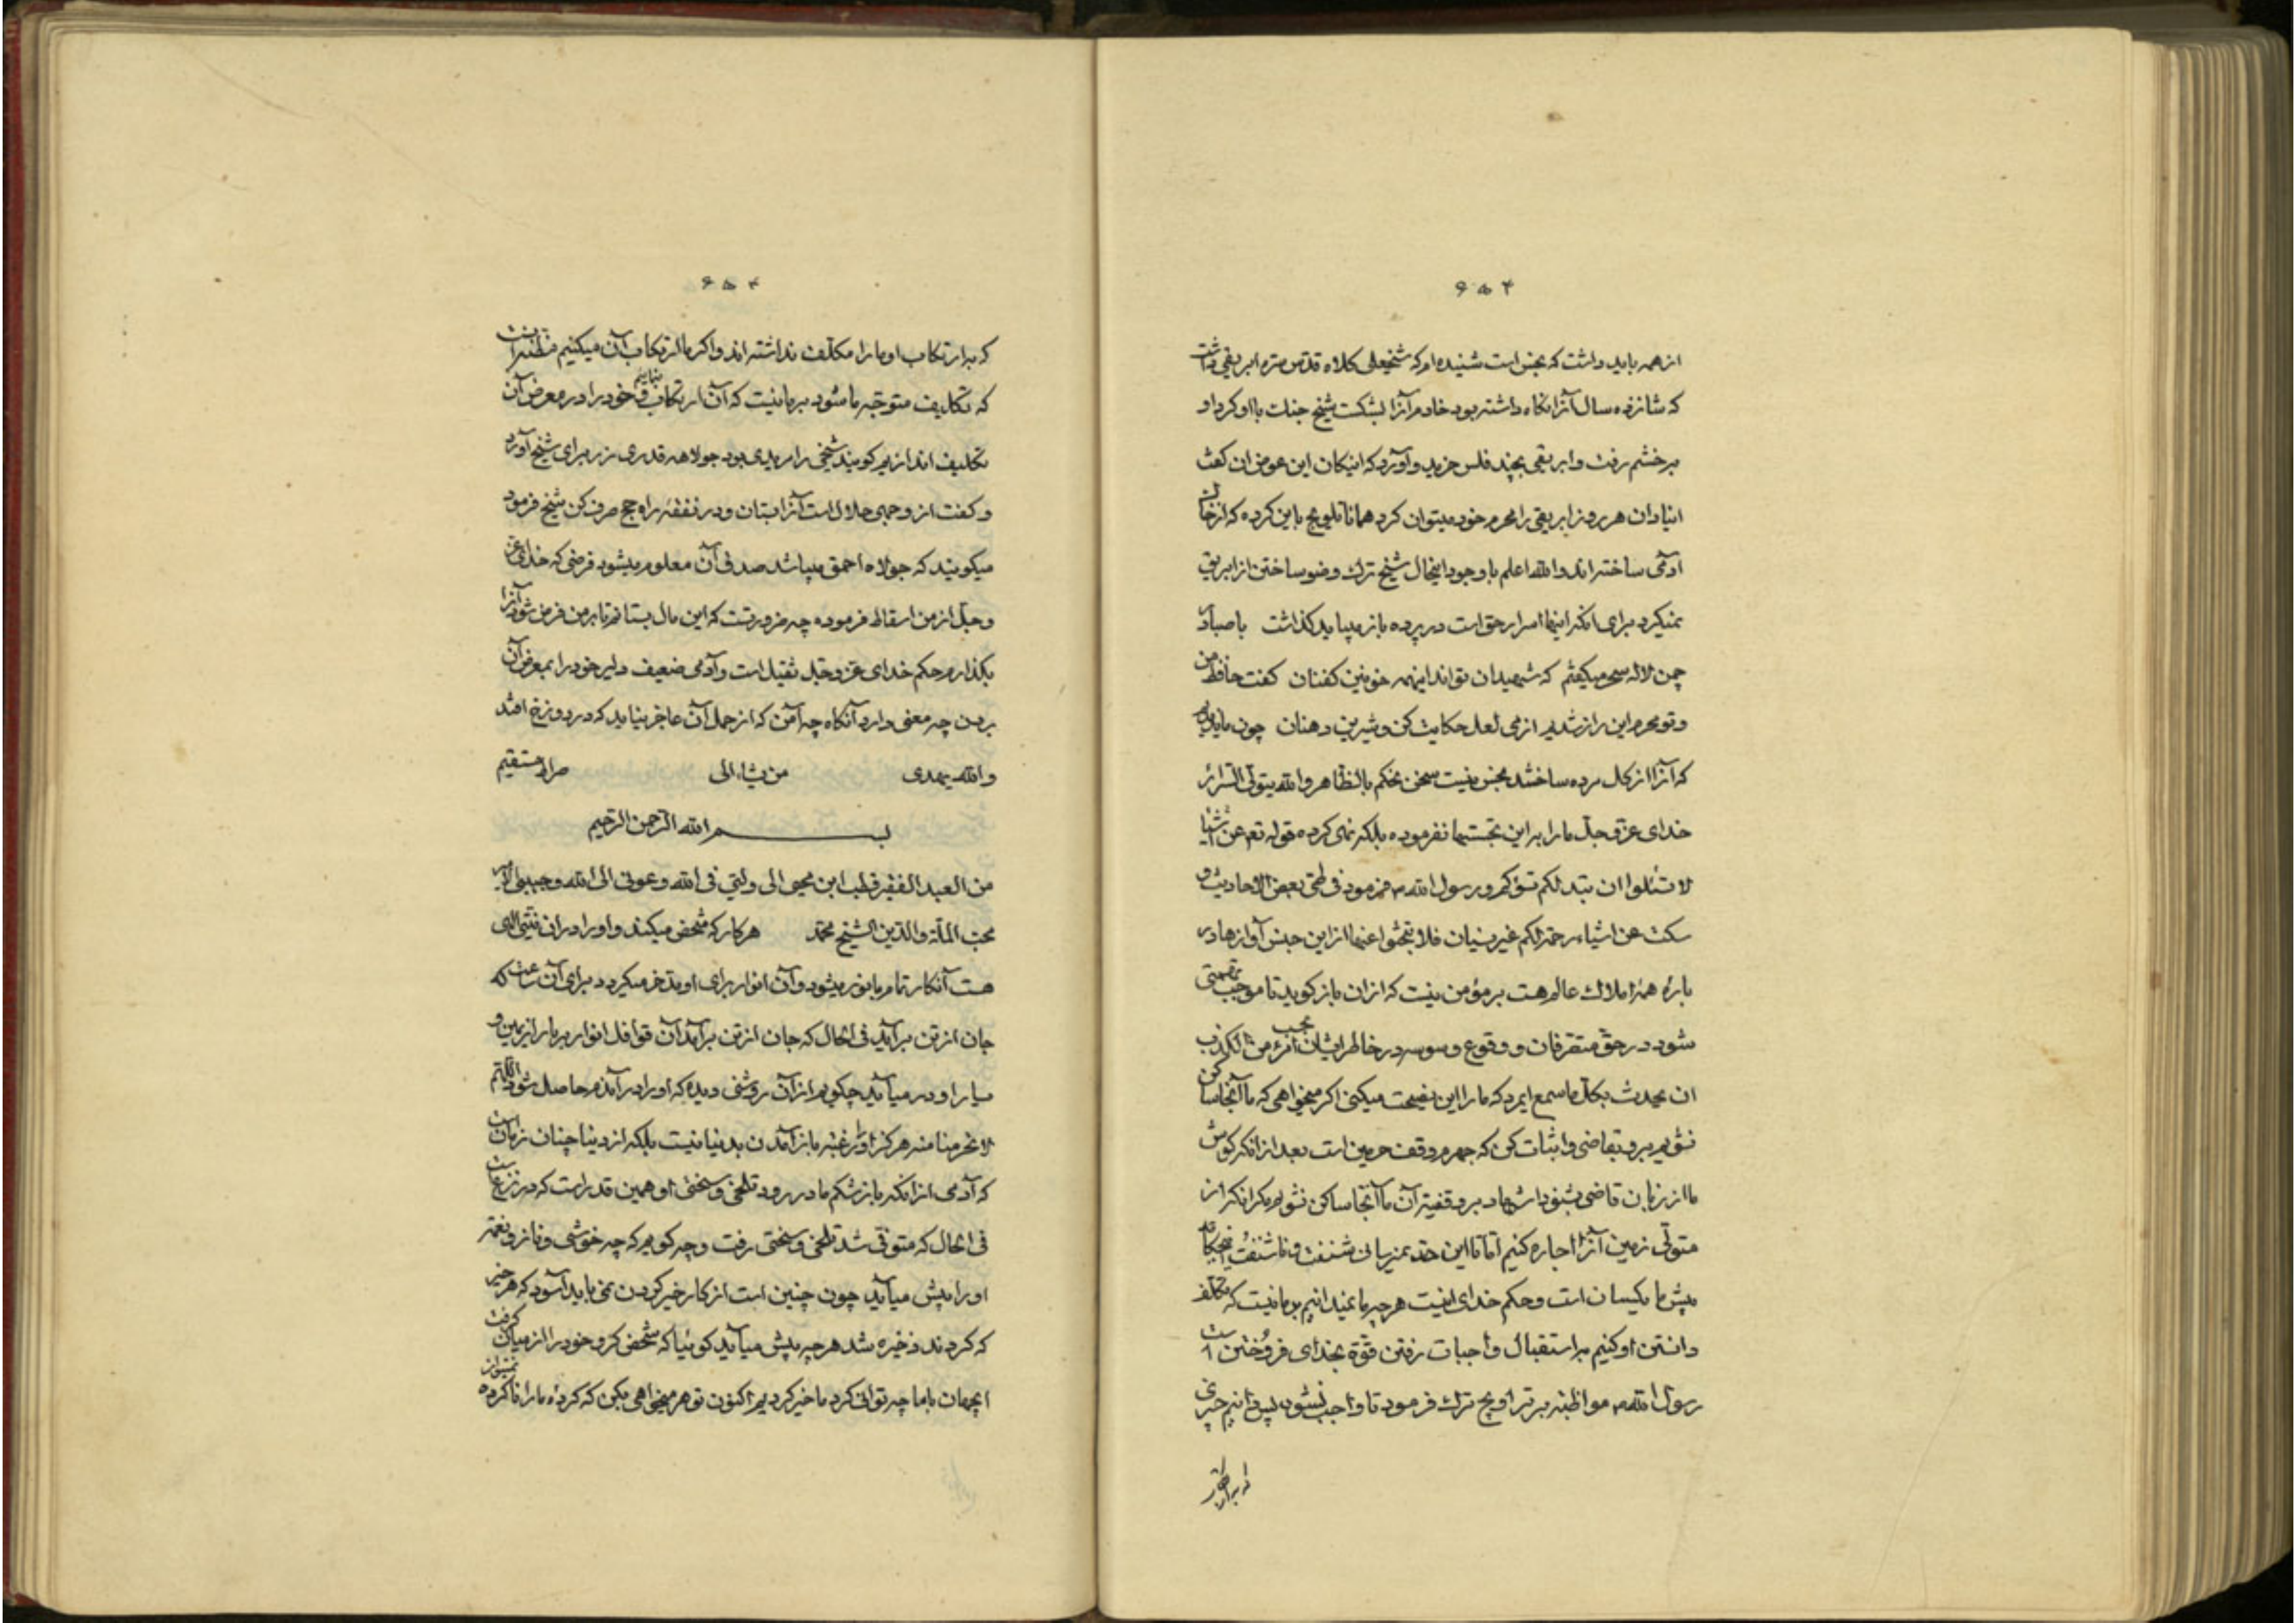 ۶۵۴
از همه باید داشت که نجس است شنیده‌ام که شیخعلی کلاه قدس سره ابریقی داشت
که شانزده سال آنرا نگاه داشته بود خادم آنرا بشکست شیخ جنات با او کرد او
بر خشم رفت و ابریقی بچند فلس خرید و آورد که اینکان این عوض ان کفت
ابریقی را محرم خود میتوان کرد همانا تلویح باین کرده که از خاک
آدمی ساخته‌اند والله اعلم با وجود اینحال شیخ ترک وضو ساختن از ابریق
نمیکرد برای انکه اینها اسرار حق است در پرده باز میباید کذاشت با صبا در
چمن لاله سحر میکفتم که شهیدان که‌اند اینهمه خونین کفنان کفت حافظ من
و تو محرم این راز نه‌ایم از می لعل حکایت کن و شیرین دهنان چون
که آنرا از کل مرده ساختند نجس نیست نحن نحکم بالظاهر والله یتولی السرائر
خدای عز و جل ما را به این تجسسها نفرموده بلکه نهی کرده قوله تع عن اشیا
لا تسئلوا ان تبد لکم تسؤکم و رسول الله فرمود فی طی بعض الاحادیث و
سکت عن اشیاء رحمة لکم غیر نسیان فلا تبحثوا عنها از این جنس آوازها در
باره همه املاک عالم هست بر مؤمن نیست که از ان باز کوید تا موجب تهمتی
شود در حق متصرفان و وقوع وسوسه در خاطر ایشان بحسب امرء من الکذب
ان یحدث بکل ما سمع ایمرد که ما را این نصیحت میکنی اکر میخواهی که ما آنجا ساکن
نشویم برو بقاضی و اثبات کن که جهرم وقف حرمین است بعد از انکه کوش
ما از زبان قاضی بشنود اشهاد بر وقفیت آن ما آنجا ساکن نشویم مکر انکه از
متولی زمین آنرا اجاره کنیم اما تا این حد نمیرسانی
پیش ما یکسان است و حکم خدای اینست هرچه ما نمیدانیم بر ما نیست که تکلف
دانستن او کنیم به استقبال واجبات رفتن قوة بخدای فروختن است
رسول الله مواظبت بر تراویح ترک فرمود تا واجب نشود پس دانیم چیزی
که بر ارتکاب
۶۵۵
که بر ارتکاب او ما را مکلف نداشته‌اند و اکر ما ارتکاب آن میکنیم
که تکلیف متوجه ما شود بر ما نیست که آن ارتکاب بنماییم و خود را در معرض آن
تکلیف اندازیم کویند شیخی را مریدی بود جولاهه قدری زر برای شیخ آورد
و کفت از وجهی حلال است آنرا بستان و در نفقه راه حج صرف کن شیخ فرمود
میکویند که جولاه احمق میباشد صدق آن معلوم میشود فرضی که خدای عز
و جل از من اسقاط فرموده چه ضرورتست که این مال بستانم تا بر من فرض شود آنرا
بکذارم حکم خدای عز و جل ثقیل است و آدمی ضعیف دلیر خود را بمعرض آن
بردن چه معنی دارد آنکاه چه آمن که از حمل آن عاجز نیاید که در دوزخ افتد
والله یهدی من یشاء الی صراط مستقیم
بسم الله الرحمن الرحیم
من العبد الفقیر قطب ابن محیی الی ولیی فی الله و عونی الی الله و حبیبی
محب الملة والدین الشیخ محمد هر کار که شخص میکند و او را در ان نیتی الهی
هست آنکار تمام با نور میشود و آن انوار برای او مدخر میکردد برای آن ساعت که
جان از تن برآید فی الحال که جان از تن برآید آن قوافل انوار بر بار از یمین و
یسار او در میآید چکویم از آن روشنی دیده که او را در آندم حاصل شود اللهم
لا تحرمنا منه هرکز او را رغبت باز آمدن بدنیا نیست بلکه از دنیا چنان
که آدمی از انکه باز شکم مادر رود تلخی و سختی او همین قدر است که در نزع است
فی الحال که متوفی شد تلخی و سختی رفت و چه کویم که چه خوشی و ناز و نعمت
او را پیش میآید چون چنین است از کار خیر کردن نمی‌باید آسود که هر خیر
که کردند ذخیره شد هرچه پیش میآید کو بیا که شخص کرو خود را از میان کرفت
ایجهان با ما چه توانی کرد ما خیر کردیم اکنون تو هر چه میخواهی بکن که کرده ما را ناکرده نمیتوان